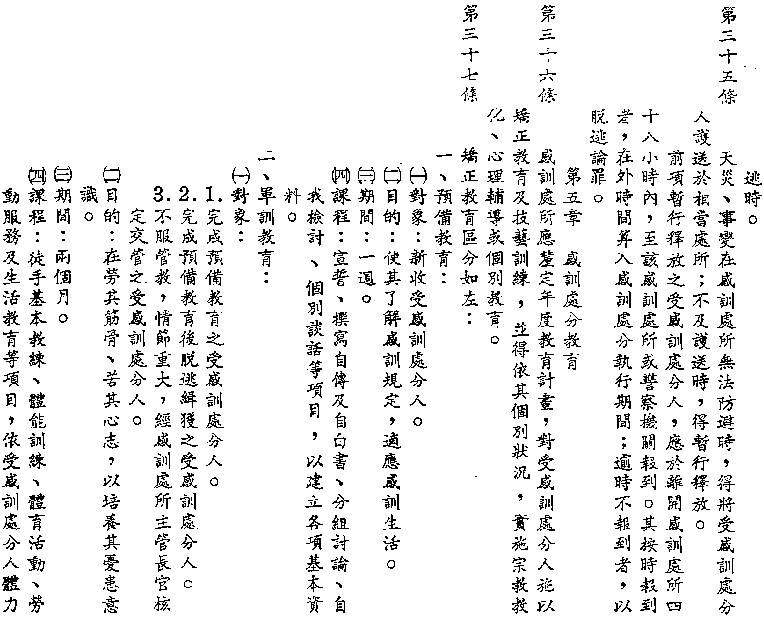 逃時。
第三十五條　天災、事變在感訓處所無法防避時，得將受感訓處分
人護送於相當處所；不及護送時，得暫行釋放。
前項暫行釋放之受感訓處分人，應於離開感訓處所四
十八小時內，至該感訓處所或警察機關報到。其按時報到
者，在外時間算入感訓處分執行期間；逾時不報到者，以
脫逃論罪。
第五章　感訓處分教育
第三十六條　感訓處所應釐定年度教育計畫，對受感訓處分人施以
矯正教育及技藝訓練，並得依其個別狀況，實施宗教教
化、心理輔導或個別教育。
第三十七條　矯正教育區分如左：
一、預備教育：
㈠對象：新收受感訓處分人。
㈡目的：使其了解感訓規定，適應感訓生活。
㈢期間：一週。
㈣課程：宣誓、撰寫自傳及自白書、分組討論、自
我檢討、個別談話等項目，以建立各項基本資
料。
二、軍訓教育：
㈠對象：
1.完成預備教育之受感訓處分人。
2.完成預備教育後脫逃緝獲之受感訓處分人。
3.不服管教，情節重大，經感訓處所主管長官核
定交管之受感訓處分人。
㈡目的：在勞其筋骨、苦其心志，以培養其憂患意
識。
㈢期間：兩個月。
㈣課程：徒手基本教練、體能訓練、體育活動、勞
動服務及生活教育等項目，依受感訓處分人體力